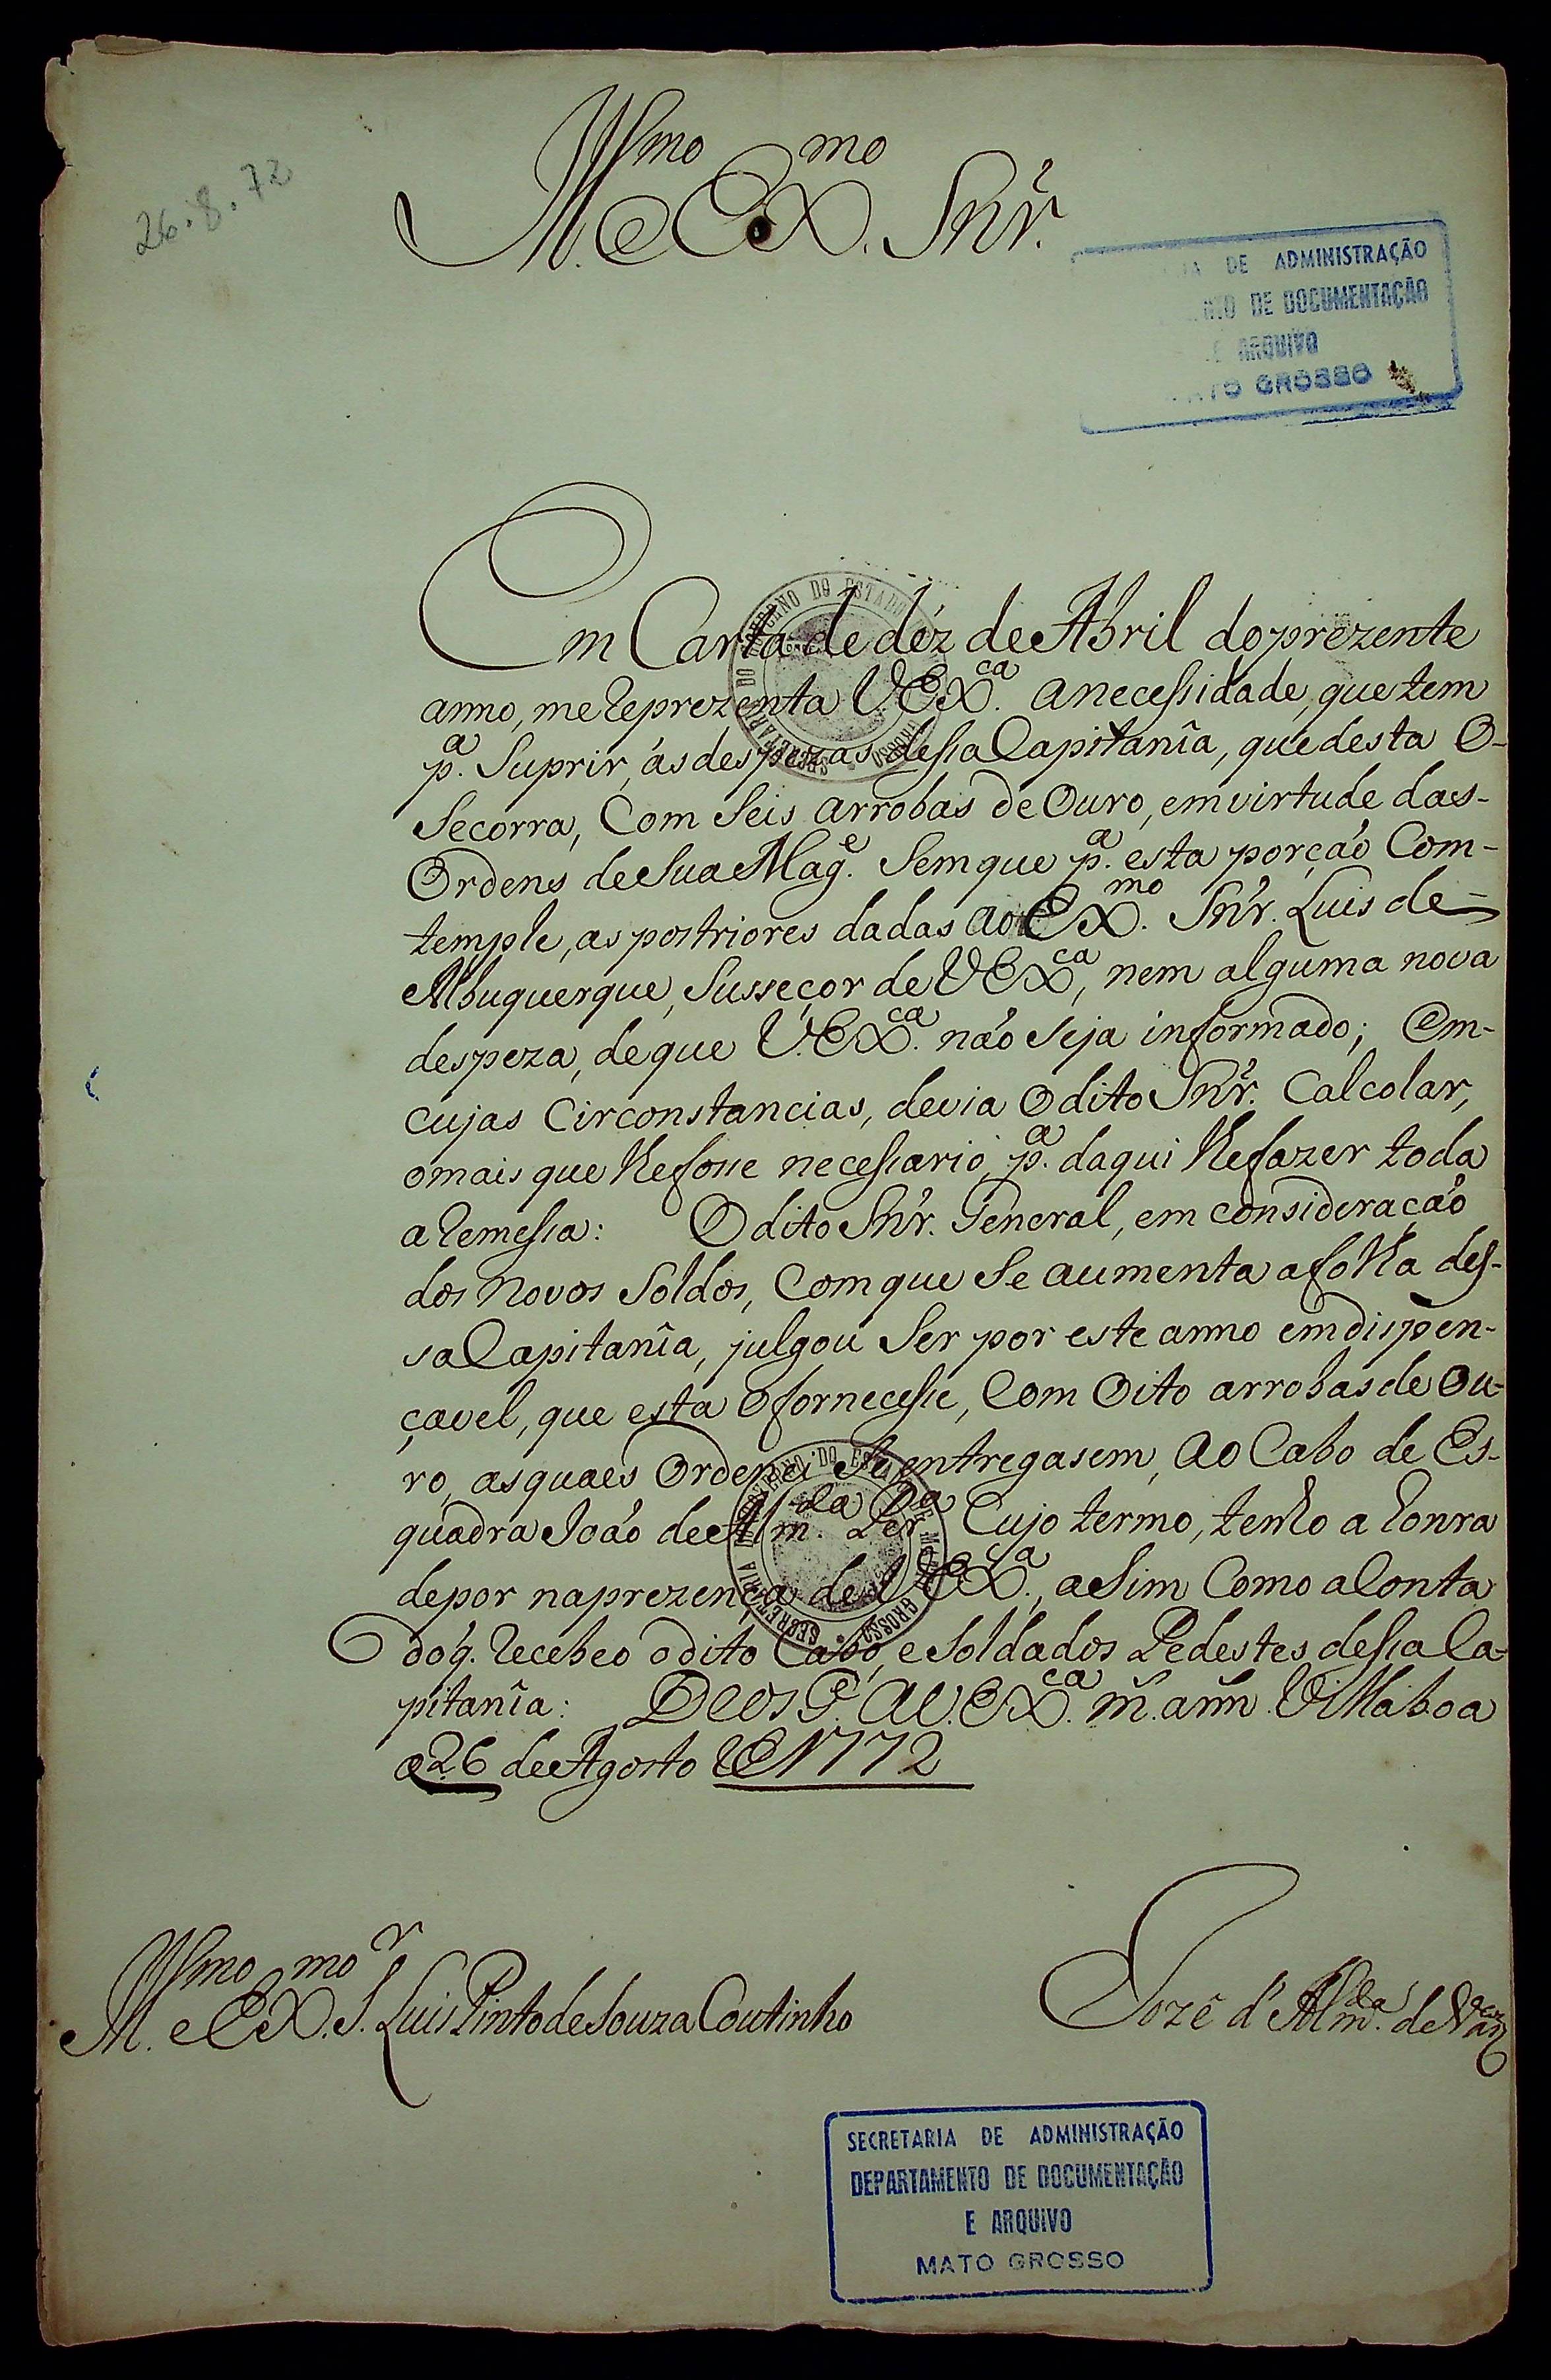 26.8.72
Ill.mo e Ex.mo Snr̃.
DE ADMINISTRAÇÃO
DE DOCUMENTAÇÃO
E ARQUIVO
MATO GROSSO
Em Carta de déz de Abril do prezente
anno, me reprezenta V. Ex.ca a necessidade, que tem
p.a Suprir, ás despezas dessa Capitanîa, que desta o-
Secorra, Com Seis arrobas de Ouro, em virtude das-
Ordens de Sua Mag.e Sem que p.a esta porção Com-
temple, as postriores dadas ao Ex.mo Snr. Luis de-
Albuquerque, Sussecor de V Ex.ca, nem alguma nova
despeza, de que V. Ex.ca não Seja informado; Em-
cujas Circonstancias, devia o dito Snr̃. Calcolar,
o mais que lhe fosse necessario, p.a daqui lhe fazer toda
a remessa: O dito Snr. General, em consideração
dos novos Soldos, Com que Se aumenta a folha des-
sa Capitanîa, julgou Ser por este anno emdispen-
çavel, que esta o fornecesse, Com Oito arrobas de Ou-
ro, as quaes Ordenei Se entregasem, ao Cabo de Es-
quadra João de Alm.da Per.a Cujo termo, tenho a honra
de por na prezença de V Ex.ca, aSim Como a Conta
do q. recebeo o dito Cabo, e Soldados Pedestes dessa Ca-
pitanîa: Deos G.e a V. Ex.ca m̃. ann̄. Villa boa
a 26 de Agosto de 1772
Ill.mo e Ex.mo S.r Luis Pinto de Souza Coutinho
Jozê d' Alm.da de V.
SECRETARIA DE ADMINISTRAÇÃO
DEPARTAMENTO DE DOCUMENTAÇÃO
E ARQUIVO
MATO GROSSO
SECRETARIA DO GOVERNO DO ESTADO GROSSO
SECRETARIA GOVERNO DO ESTADO DE MATTO GROSSO